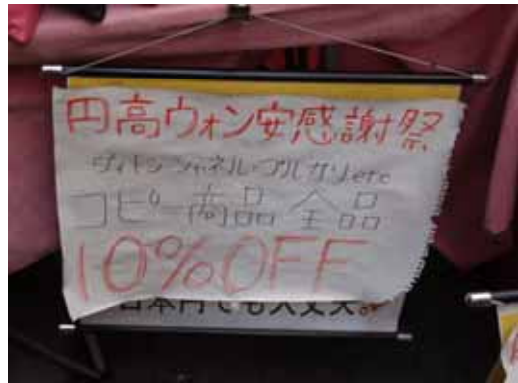 円高ウォン安感謝祭
ヴィトン シャネル・ブルガリetc
コピー商品 全品
10%OFF
日本円でも大丈夫。